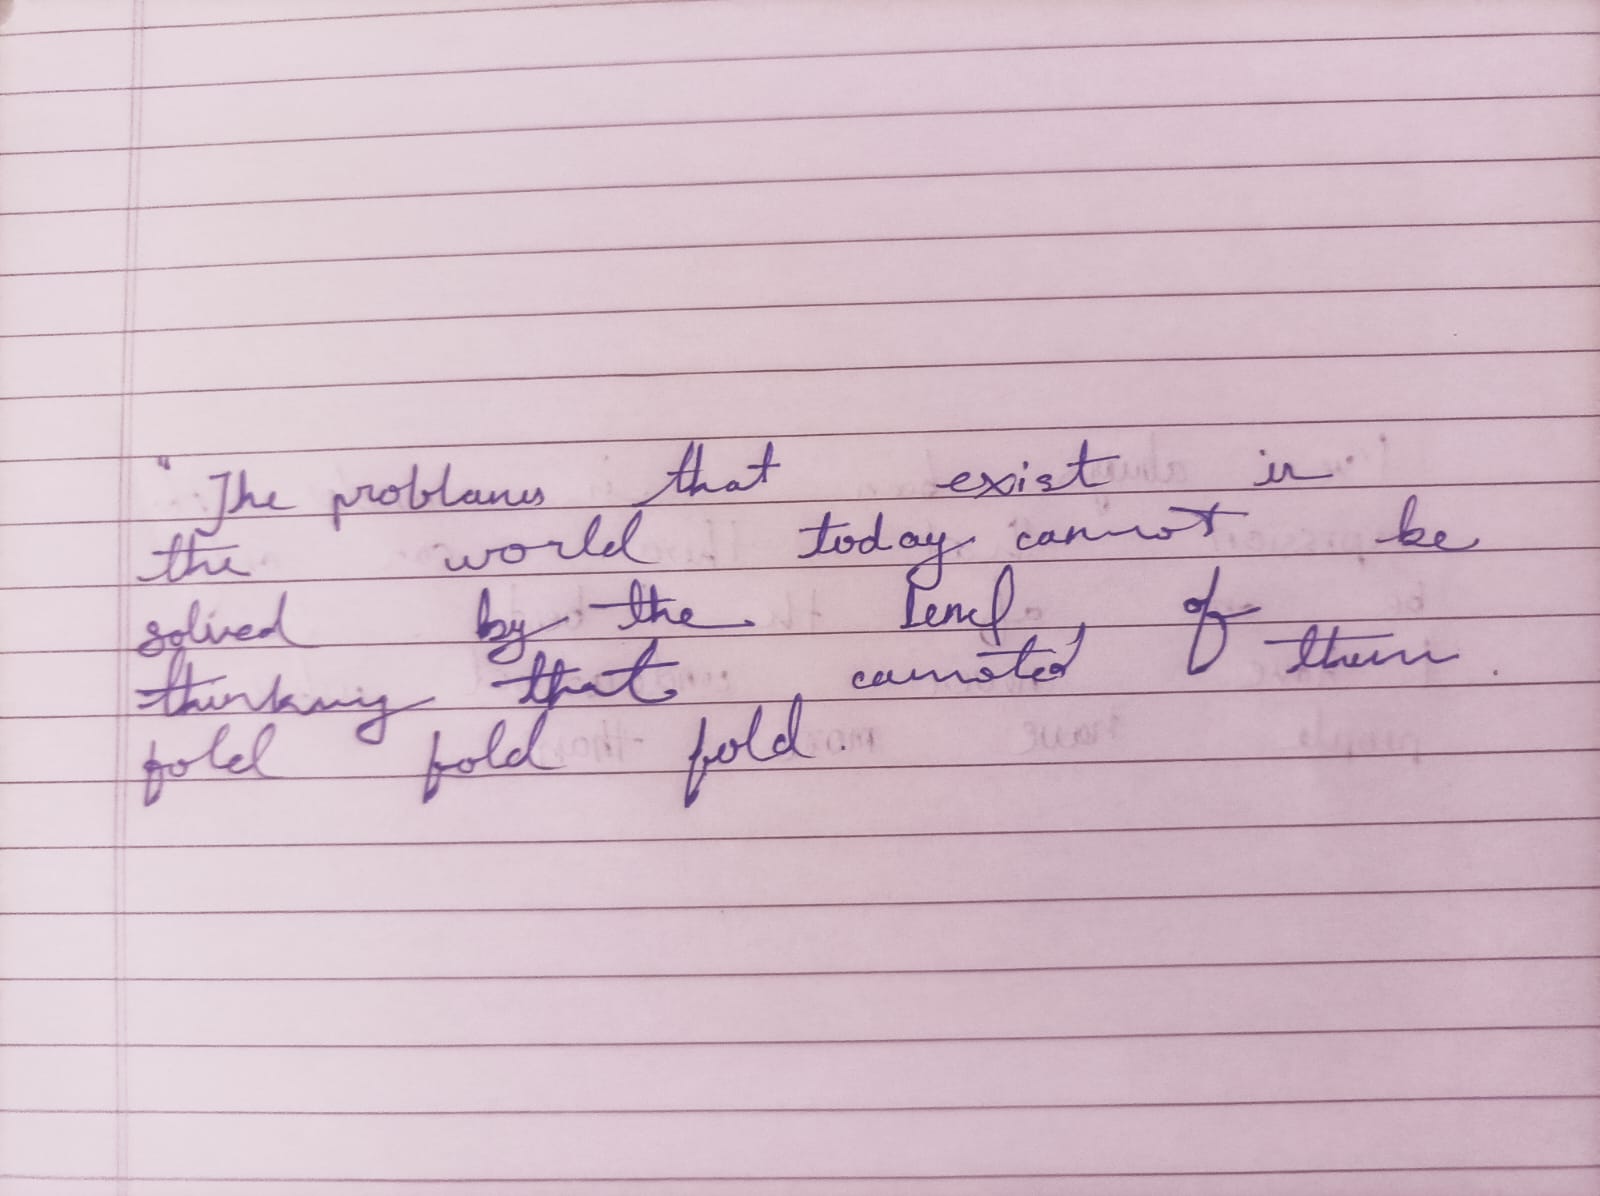 "The problams that exist in
the world today cannot be
solved by the level of
thinking that camoted them.
fold fold fold.